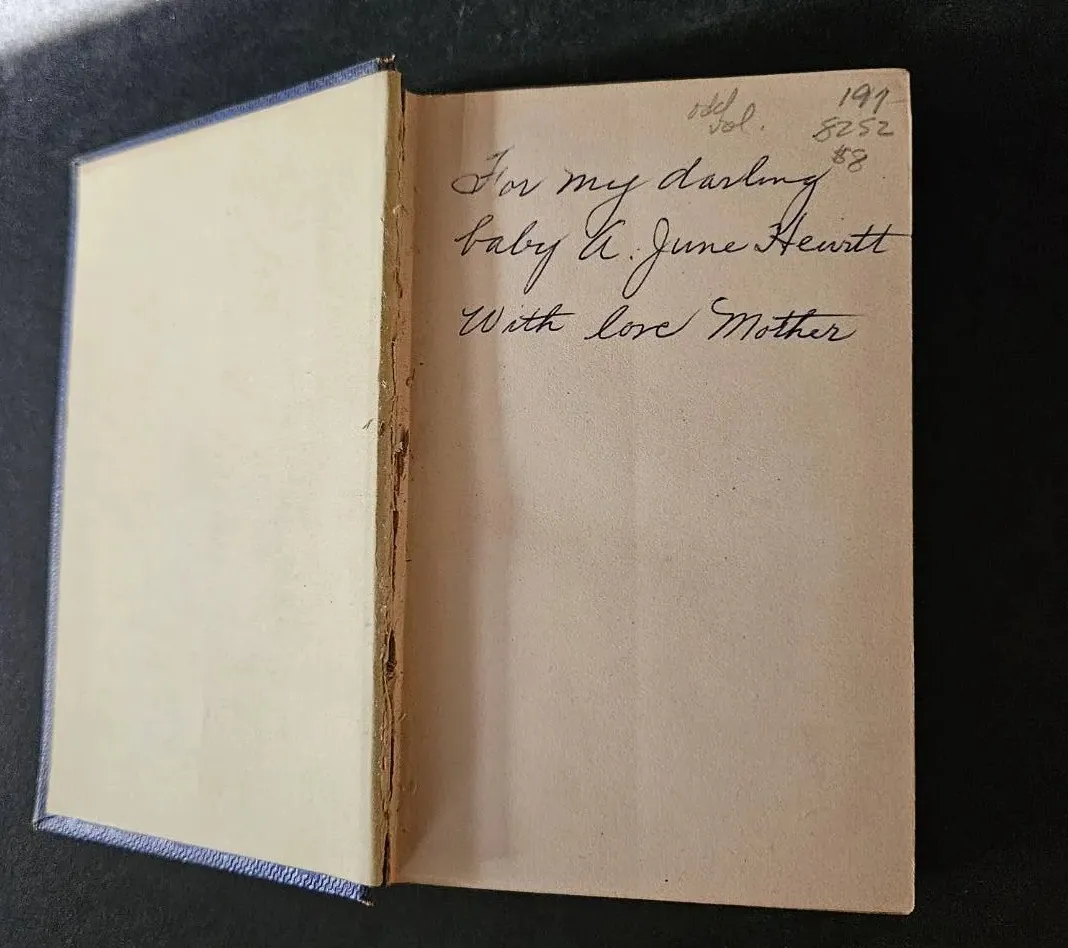 odd 197
vol. 8252
$8
For my darling
baby A. June Hewitt
With love Mother